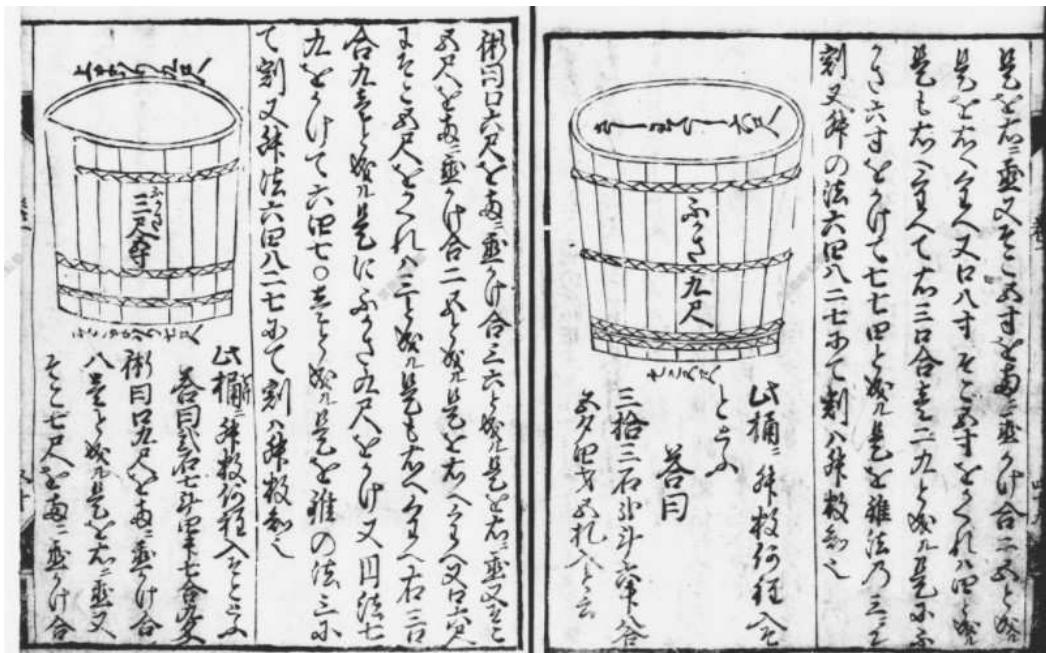 是を右ニ置又そこ五寸を両ニ置かけ合二五と成ル
是を右へくわへ又口八寸そこ五寸をかくれハ四と成ル
是も右へくわへて右三口合壱二九と成ル是にふ
かさ六寸をかけて七七四と成ル是を錐法乃三にて
割又舛の法六四八二七にて割ハ舛数知也
ふかさ九尺
此桶ニ舛数何程入そ
とふ
答曰
三拾三石弐斗六升八合
五夕四才五札入と云
術曰口六尺を両ニ置かけ合三六と成ル是を右ニ置又そこ
五尺を両ニ置かけ合二五と成ル是を右へくわへ又口六尺
にそこ五尺をかくれハ三と成ル是も右へくわへ右三口
合九壱と成ル是にふかさ九尺をかけ又円法七
九をかけて六四七〇壱と成ル是を錐の法三に
て割又舛法六四八二七にて割ハ舛数知也
ふかさ三尺
此桶ニ舛数何程入そととふ
答曰
術曰口九尺を両ニ置かけ合
八壱と成ル是を右ニ置又
そこ七尺を両ニ置かけ合